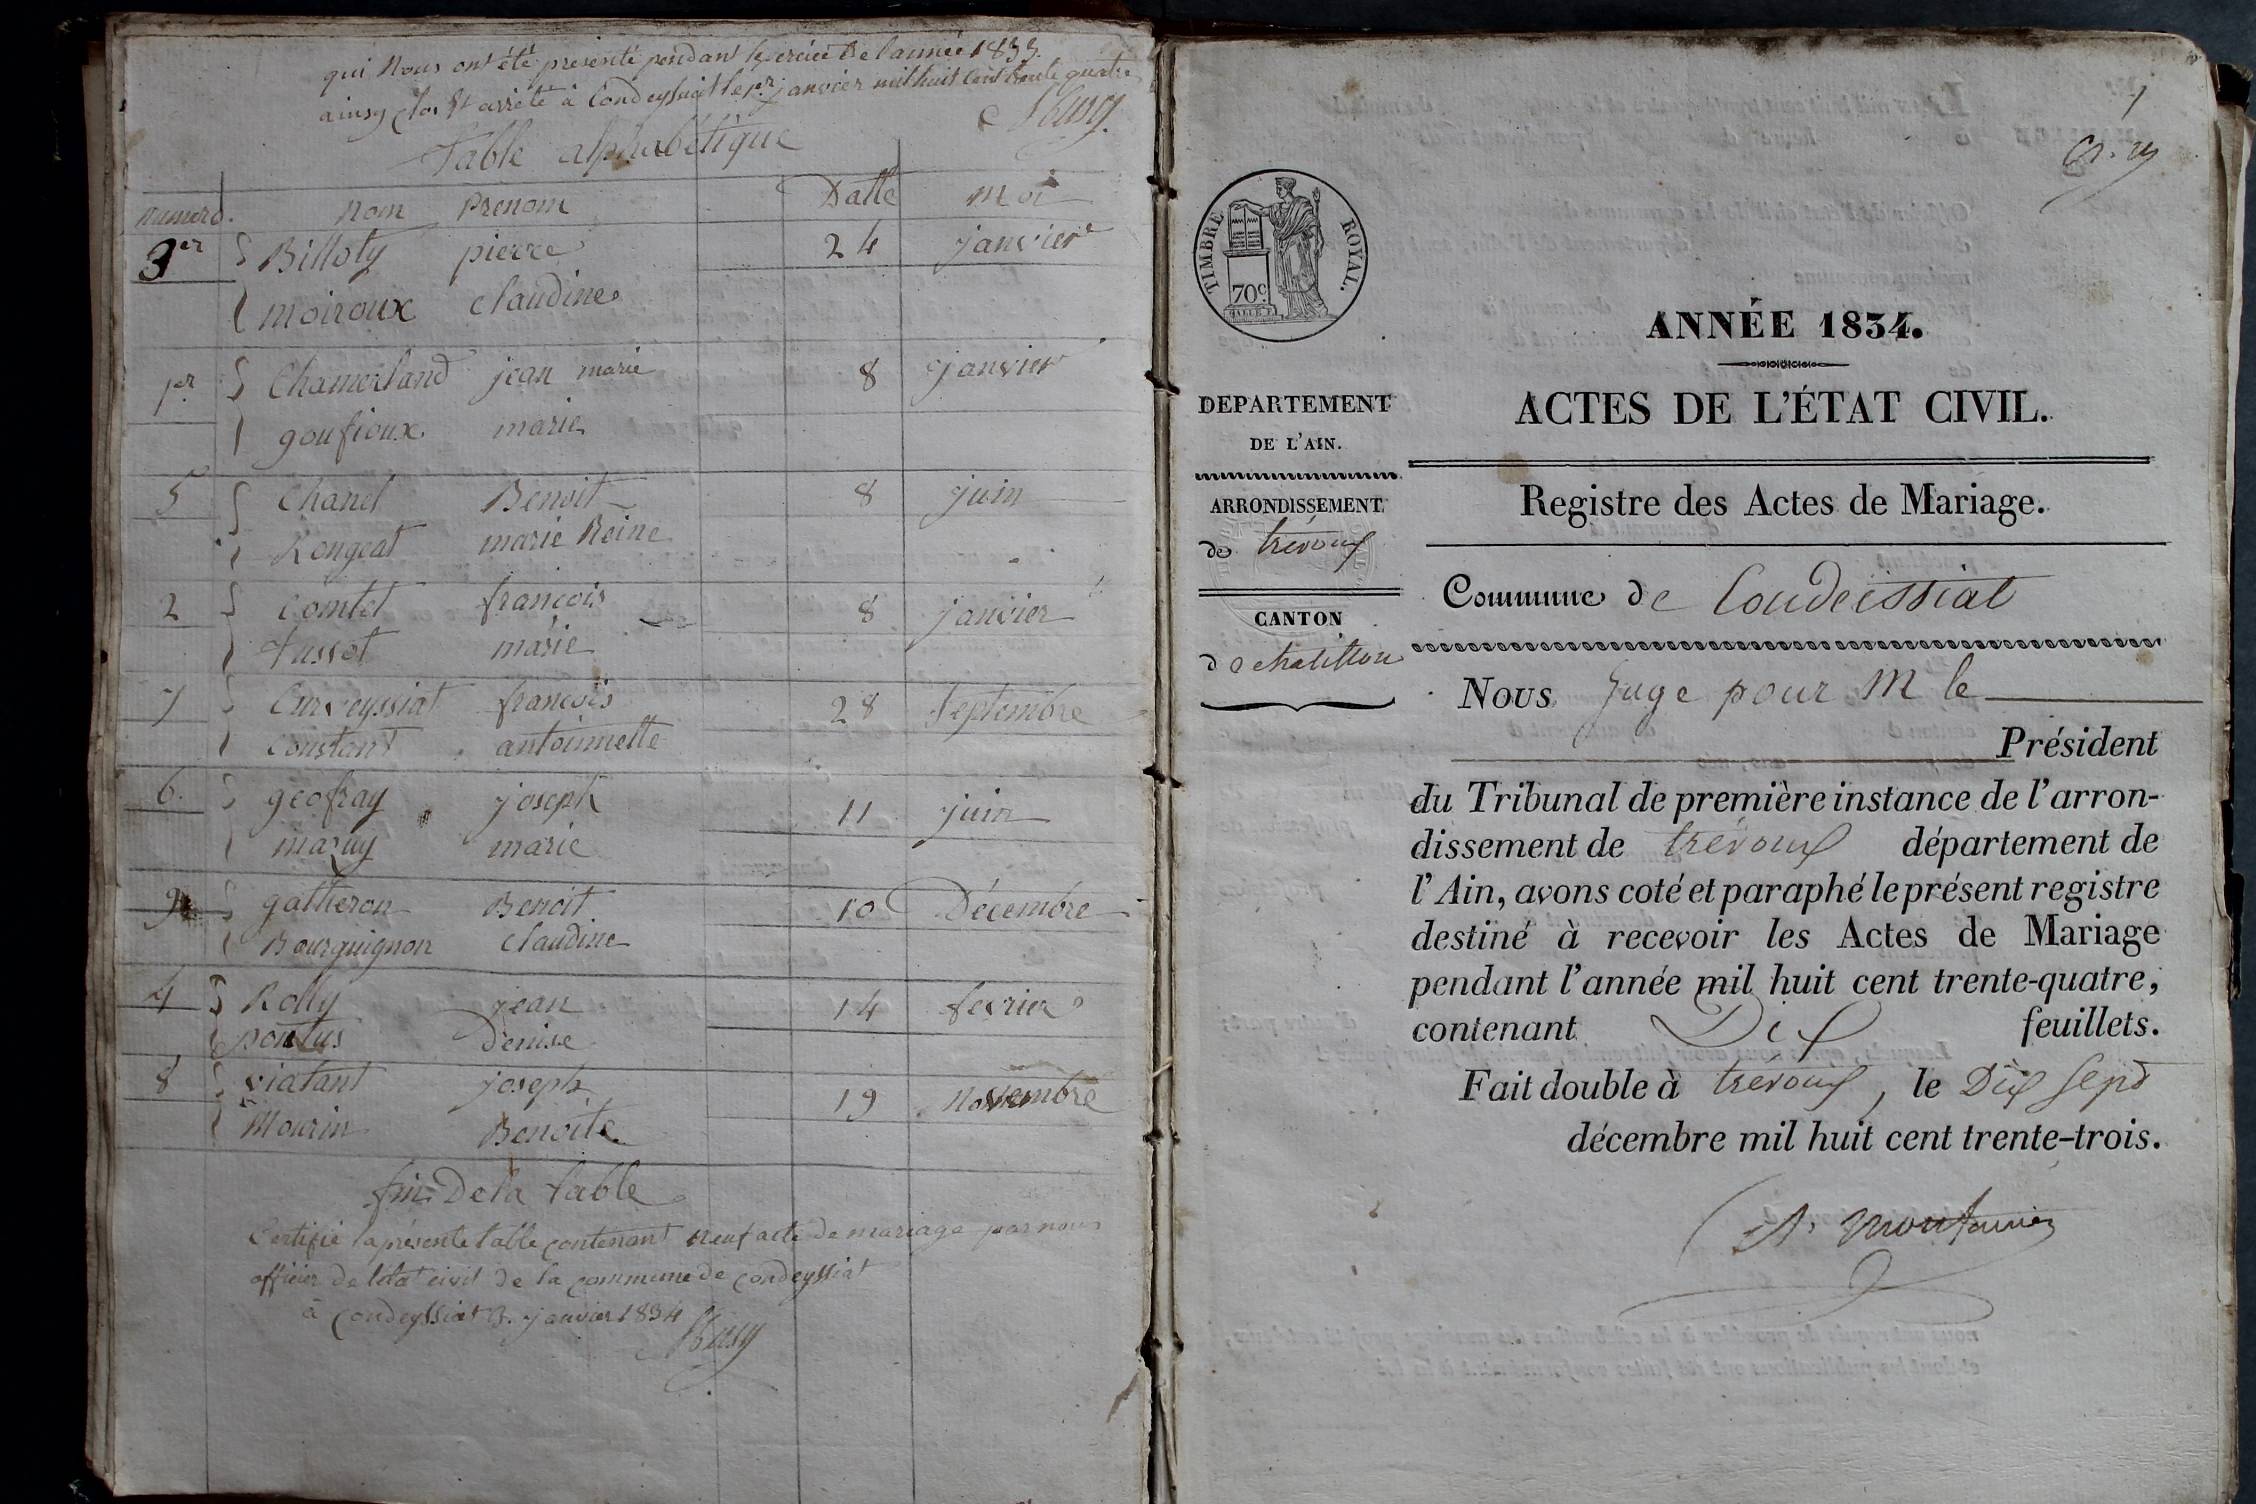 qui Nous ont été présenté pendant lexercice De l'année 1833.
ainsy clos et arrêté à Condeyssiat le 1er janvier mil huit cent trente quatre
Table alphabétique
numero. nom Prenom Datte moi
3er Billoty pierre 24 janvier
moiroux claudine
1er Chamerland jean marie 8 janvier
goufioux marie
5 Chanel Benoit 8 juin
Rongeat marie Reine
2 Comtet françois 8 janvier
Tussot marie
7 Curveyssiat françois 28 septembre
Constant antoinnette
6. geofray joseph 11 juin
maruy marie
9 gatheron Benoit 10 Décembre
Bourguignon claudine
4 Rolly jean 14 fevrier
pontus Denise
8 viatant joseph 19 Novembre
Mourin Benoite
fin De la table
Certifié la présente table contenant neuf acte de mariage par nous
officier de létat civil de la commune de condeyssiat
à condeyssiat 3. janvier 1834
1
TIMBRE ROYAL.
70c
ANNÉE 1834.
ACTES DE L'ÉTAT CIVIL.
DEPARTEMENT
DE L'AIN.
Registre des Actes de Mariage.
ARRONDISSEMENT
de trévoux
Commune de Condeissiat
CANTON
de chatillon
Nous Juge pour M le
Président
du Tribunal de première instance de l'arron-
dissement de trévoux département de
l'Ain, avons coté et paraphé le présent registre
destiné à recevoir les Actes de Mariage
pendant l'année mil huit cent trente-quatre,
contenant Dix feuillets.
Fait double à trévoux, le Dix Sept
décembre mil huit cent trente-trois.